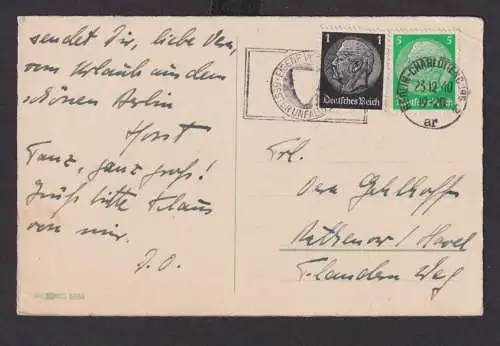 sendet Dir, liebe Vera,
vom Urlaub aus dem
schönen Berlin
Horst
Ganz, ganz groß!
Grüß bitte Klaus
von mir.
D.O.
1
Deutsches Reich
5
Deutsches Reich
BERLIN-CHARLOTTENBURG 2
23.12.40
ar
Frl.
Vera Gehlhoff
Rathenow / Havel
Flandern Weg